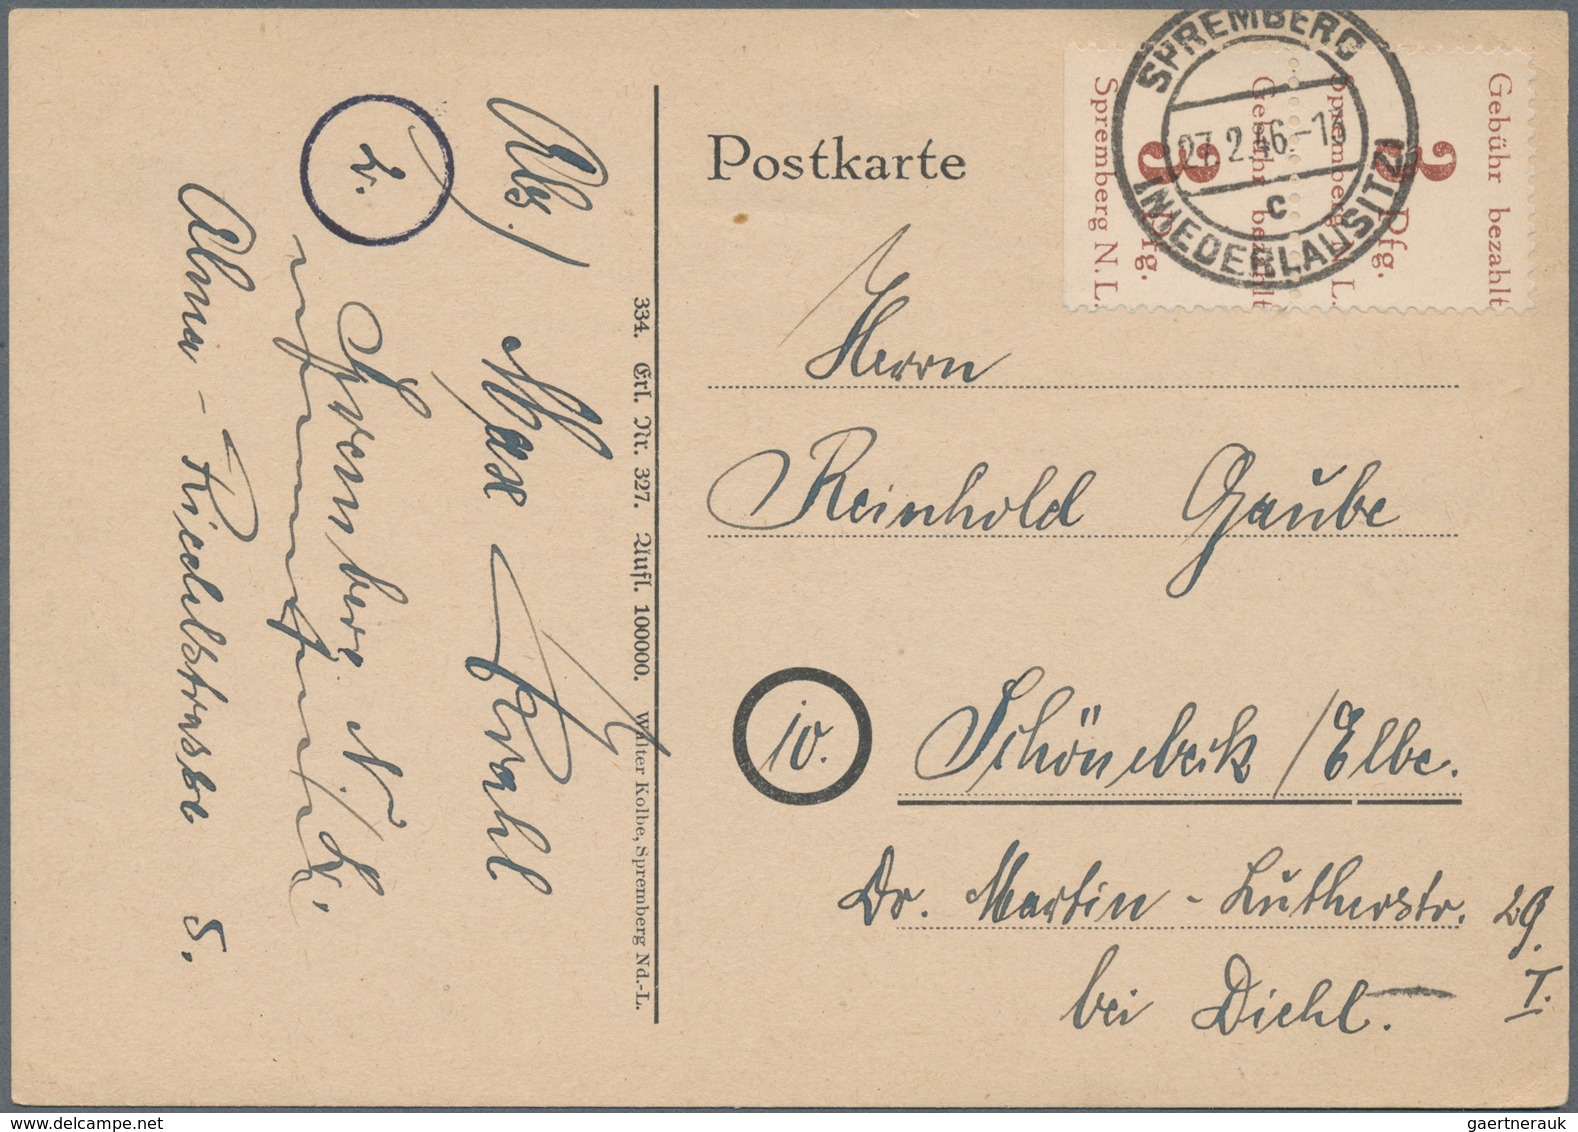 Postkarte
SPREMBERG
(NIEDERLAUSITZ)
27.2.46.-13
c
Gebühr bezahlt
3 Pfg.
Spremberg N. L.
Gebühr bezahlt
3 Pfg.
Spremberg N. L.
Herrn
Reinhold Gaube
10.
Schönebeck / Elbe.
Dr. Martin-Lutherstr. 29.
I.
bei Diehl.
334. Erl. Nr. 327. Aufl. 100000. Walter Kolbe, Spremberg Nd.-L.
Abs./ Max Krahl
2.
Spremberg N./L.
Alma-Riedelstrasse 8.
gaertnerauk / www.delcampe.net